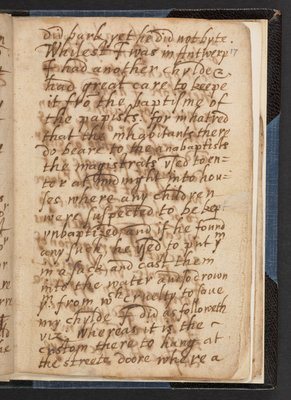 did bark yet he did not byte.
Whilest I was in Antwerp 17
I had another chylde &
had great care to keepe
it fro the baptyme of
the papists. for in hatred
that the inhabitants there
do beare to the anabaptists
the magistrats used to en-
ter at midnight into hou-
ses where any children
were suspected to be kept
unbaptized, and if he found
any such he used to put ym
in a sack and cast them
into the water and so drown
ym. from wch cruelty to save
my chylde I did as followeth
viz. Whereas it is the
custom there to hang at
the streete doore where a